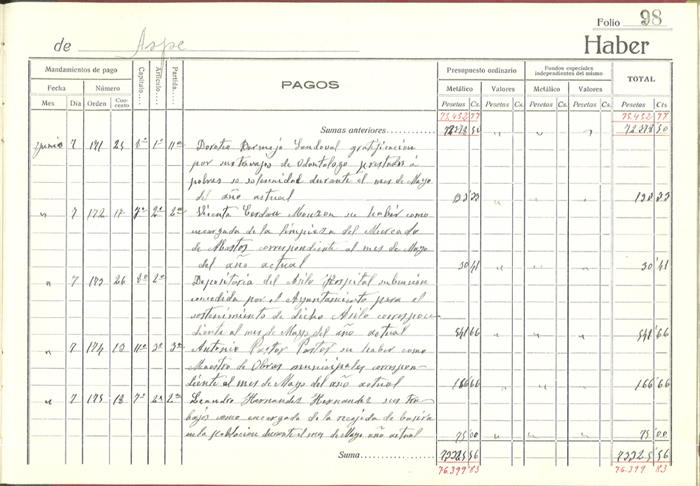 Folio 98
de Aspe Haber
Mandamientos de pago Capítulo.... Artículo.... Partida.... PAGOS Presupuesto ordinario Fondos especiales independientes del mismo TOTAL
Fecha Número Metálico Valores Metálico Valores
Mes Día Orden Concepto Pesetas Cs. Pesetas Cs. Pesetas Cs. Pesetas Cs. Pesetas Cts
75.452 77 75.452 77
Sumas anteriores 72378 50 " " " 72378 50
Junio 7 171 25 8º 1º 11ª Doroteo Bermejo Sandoval gratificación
por sus trabajos de Odontólogo prestados á
pobres de solemnidad durante el mes de Mayo
del año actual 133 33 133 33
" 7 172 17 7º 2º 2ª Vicenta Cerdán Monzon su haber como
encargada de la limpieza del Mercado
de Abastos correspondiente al mes de Mayo
del año actual 30 41 " " " 30 41
" 7 173 26 8º 2º Depositaria del Asilo Hospital subvención
concedida por el Ayuntamiento para el
sostenimiento de dicho Asilo correspon-
diente al mes de Mayo del año actual 541 66 " " " 541 66
" 7 174 10 11º 3º 3ª Antonio Pastor Pastor su haber como
Maestro de Obras municipales correspon-
diente al mes de Mayo del año actual 166 66 " " " 166 66
" 7 175 18 7º 2º 2ª Leandro Hernandez Hernandez sus tra-
bajos como encargado de la recojida de basura
en la población durante el mes de Mayo año actual 75 00 " " " 75 00
Suma 73325 56 73325 56
76.399 83 76.399 83